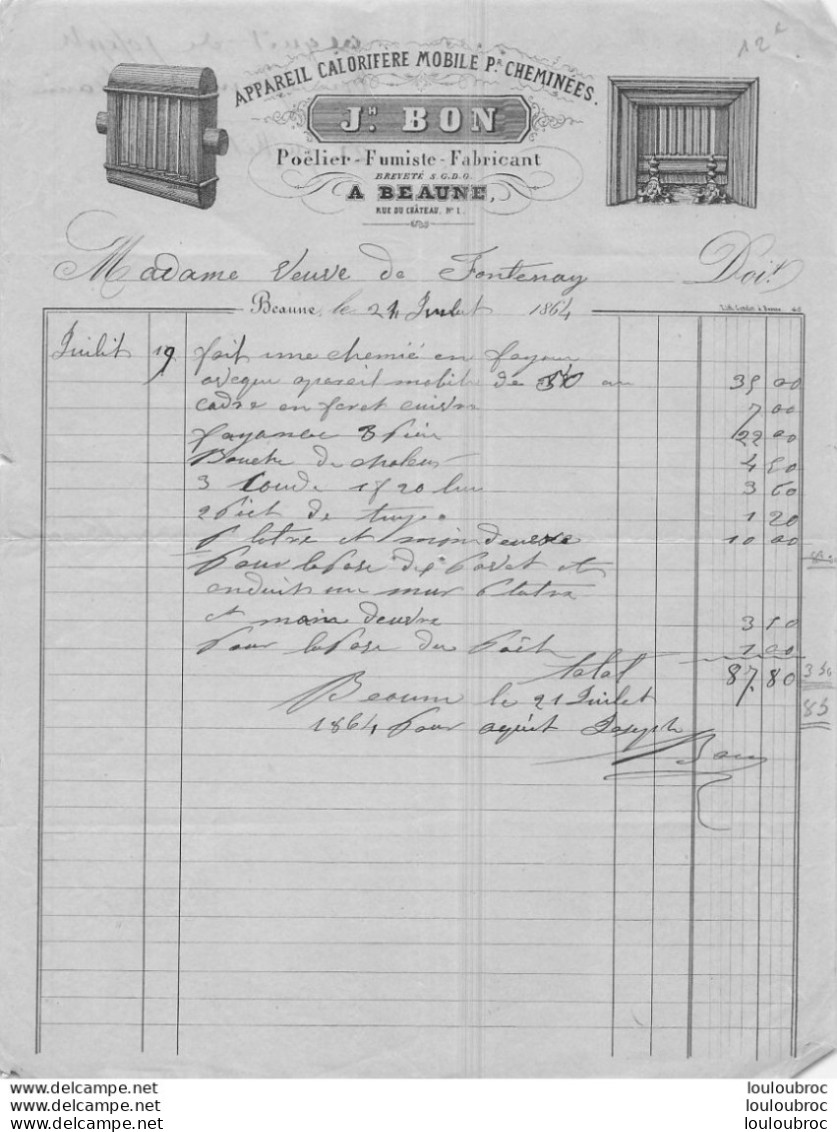 12
APPAREIL CALORIFERE MOBILE Pr CHEMINÉES.
JH. BON
Poëlier-Fumiste-Fabricant
BREVETÉ S.G.D.G.
A BEAUNE,
RUE DU CHÂTEAU, N° 1.
Madame veuve de Fontenay Doit
Beaune, le 21 Juillet 1864
Juillit 19 fait une chemié en
aveque apareil mobile de 50 35 00
cadre en cuivre 7 00
fayance 8 22 00
Bouche de chaleur 4 50
3 Coude 1f 20 3 60
2 de tuyo 1 20
Platre et main deuvre 10 00
Pour lapose de et
enduit un mur Platre
et main deuvre 3 50
Pour lapose du 1 00
total 87.80 3 50
Beaune le 21 Juillet 85
1864 Pour aquit Joseph
Bon
www.delcampe.net
www.delcampe.net
www.delcampe.net
louloubroc
louloubroc
louloubroc